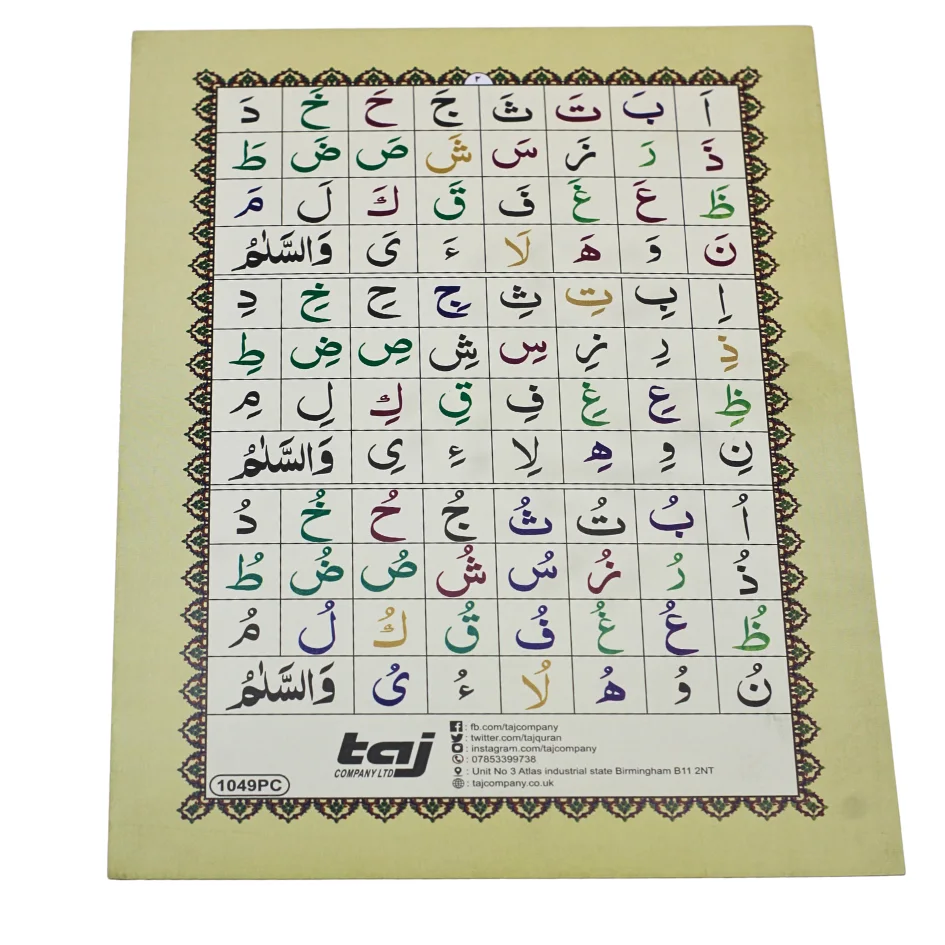 ٢
اَ بَ تَ ثَ جَ حَ خَ دَ
ذَ رَ زَ سَ شَ صَ ضَ طَ
ظَ عَ غَ فَ قَ كَ لَ مَ
نَ وَ هَ لَا ءَ یَ وَالسَّلٰمُ
اِ بِ تِ ثِ جِ حِ خِ دِ
ذِ رِ زِ سِ شِ صِ ضِ طِ
ظِ عِ غِ فِ قِ كِ لِ مِ
نِ وِ هِ لِا ءِ یِ وَالسَّلٰمُ
اُ بُ تُ ثُ جُ حُ خُ دُ
ذُ رُ زُ سُ شُ صُ ضُ طُ
ظُ عُ غُ فُ قُ كُ لُ مُ
نُ وُ هُ لُا ءُ یُ وَالسَّلٰمُ
taj
COMPANY LTD
: fb.com/tajcompany
: twitter.com/tajquran
: instagram.com/tajcompany
: 07853399738
: Unit No 3 Atlas industrial state Birmingham B11 2NT
: tajcompany.co.uk
1049PC